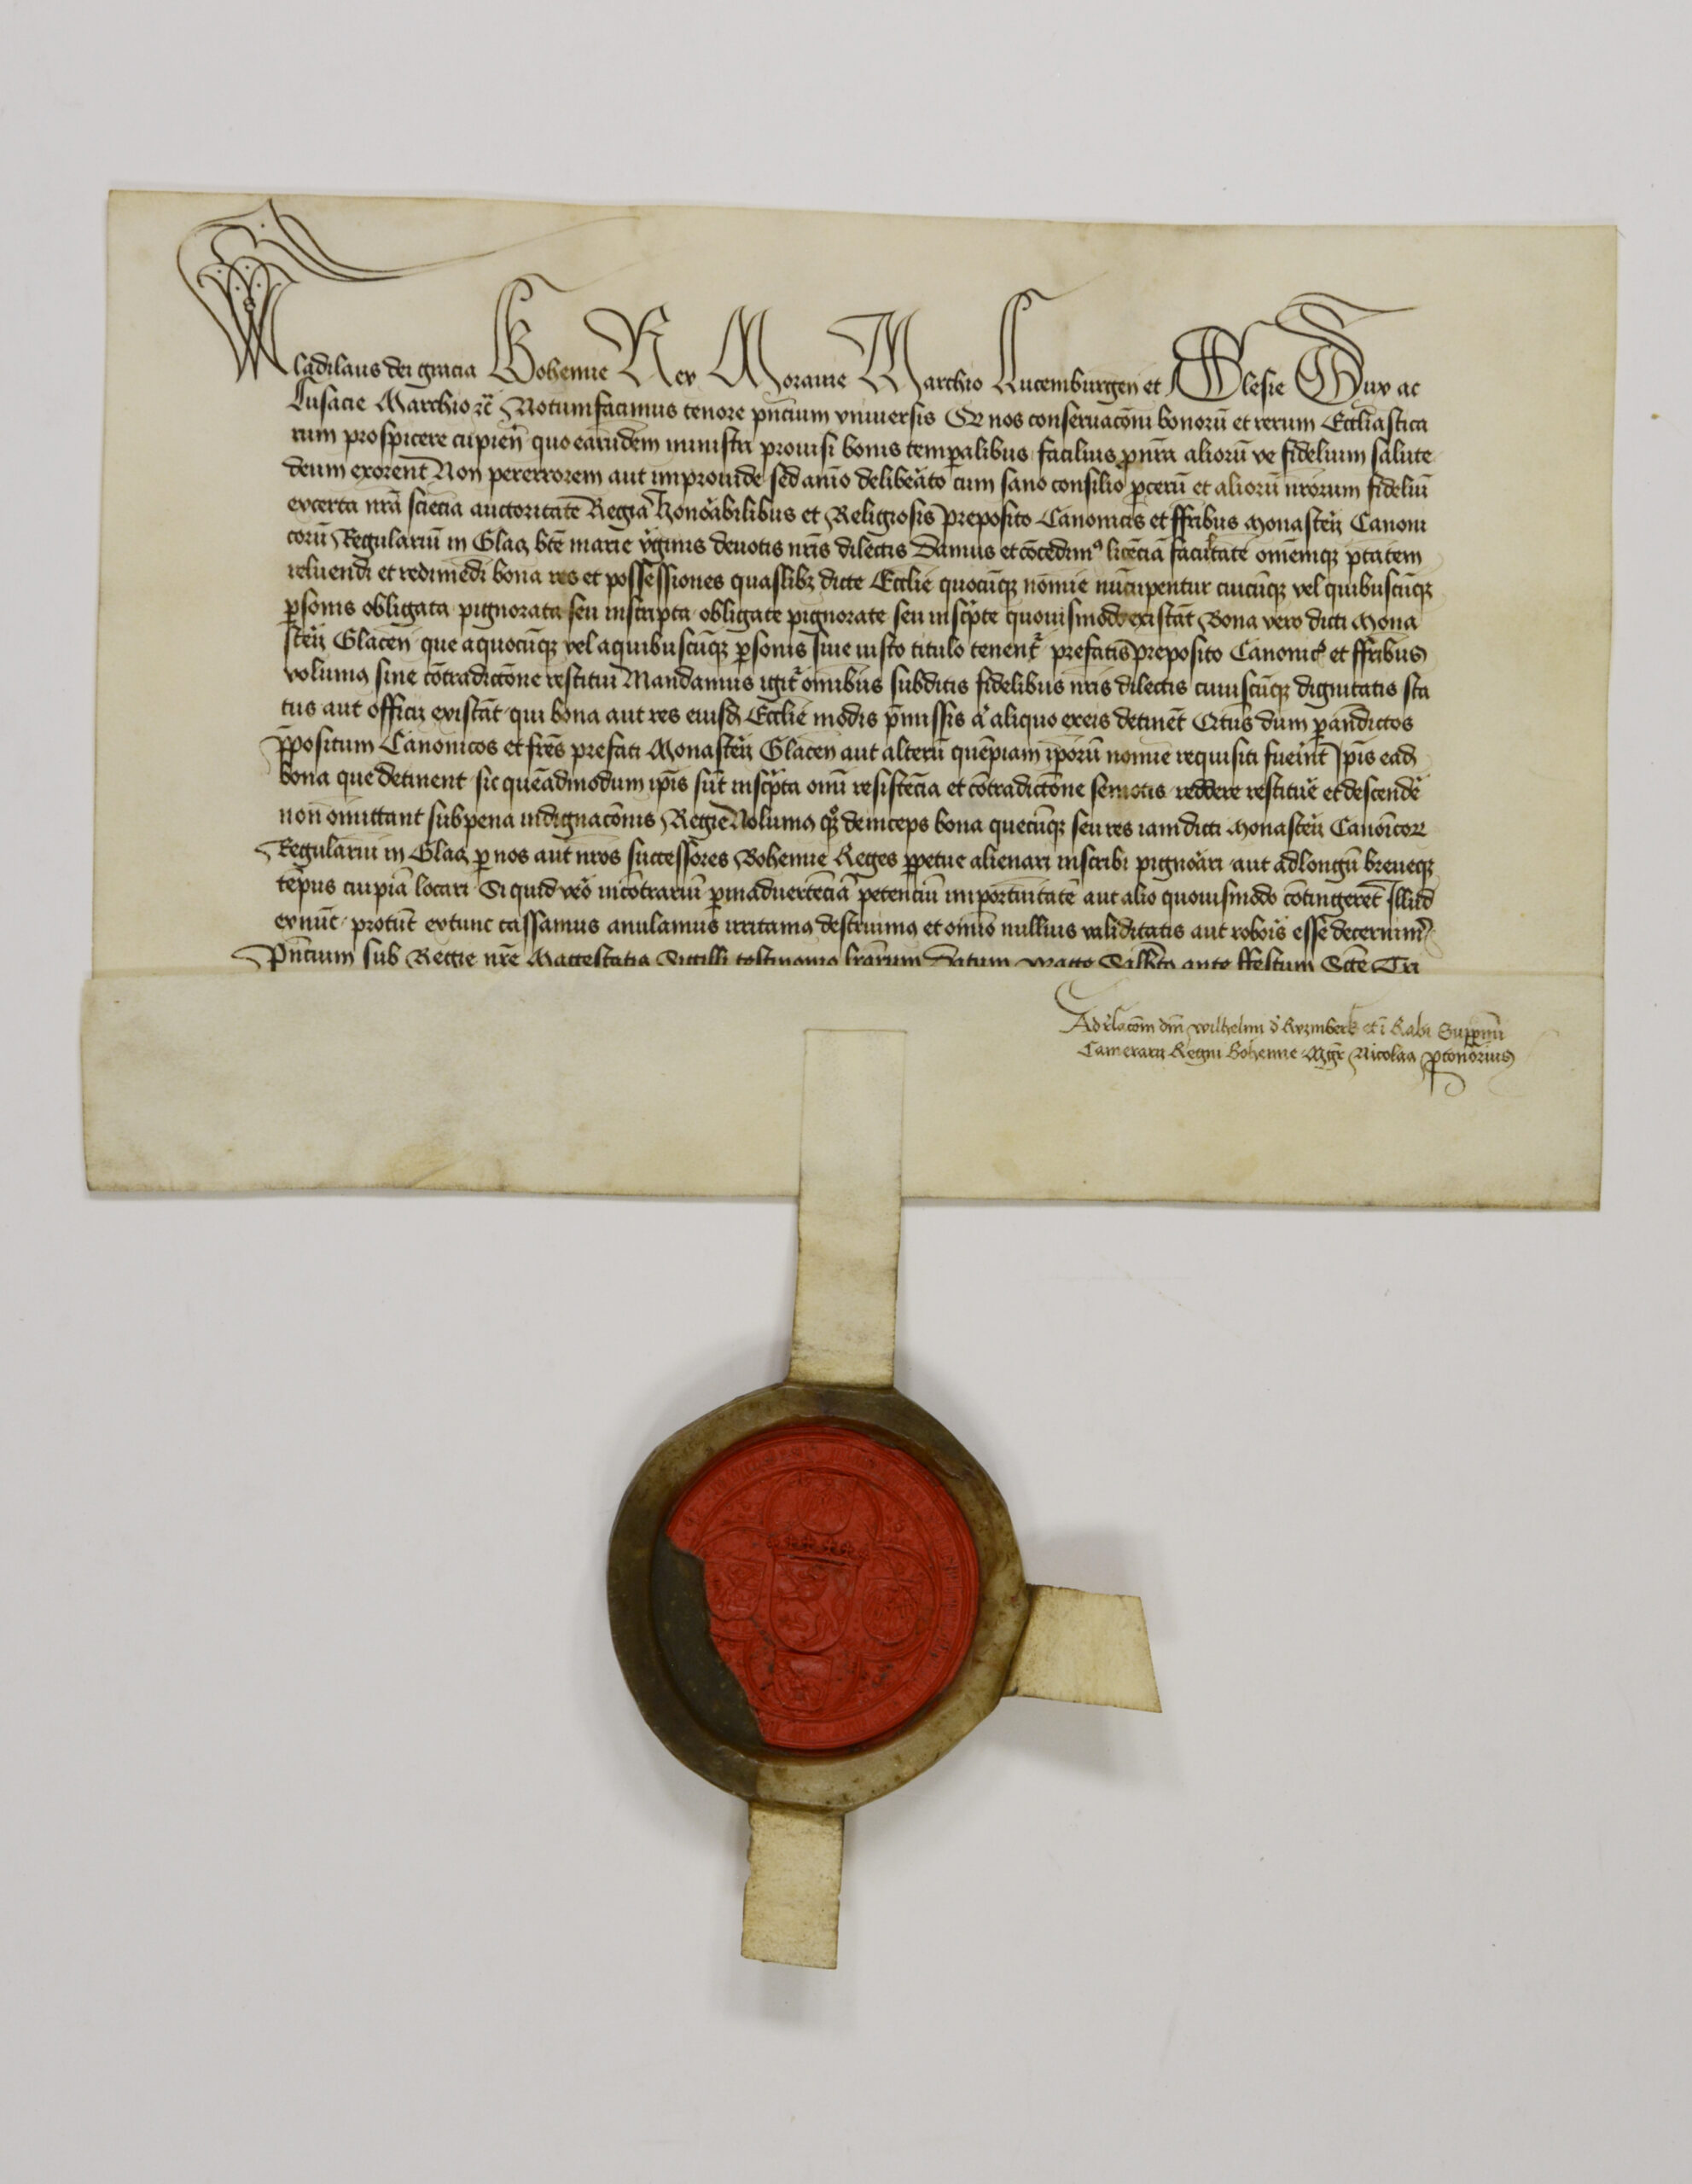 Wladislaus dei gracia Bohemie Rex Moravie Marchio Lucemburgen̄ et Slesie Dux ac
Lusacie Marchio ꝛc̄ Notumfacimus tenore pn̄cium vniuersis Q nos conseruacōni bonorū et rerum Eccl̄iastica
rum prospicere cupien̄ quo earundem ministri prouisi bonis temꝑalibus facilius ꝓ nr̄a aliorū ve fidelium salute
deum exorent Non pererrorem aut improuide sed anīo delibeͣto cum sano consilio ꝓcerū et aliorū nr̄orum fideliū
excerta nr̄a sciēcia auctoritate Regia Honoͣbilibus et Religiosis preposito Canonicis et ffribus Monasterij Canoni
corū Regulariū in Glacz bt̄e marie v̓ginis deuotis nr̄is dilectis Damus et cōcedimꝰ licēciā facultatē omēmqꝫ ptātem
reluendi et redimēdi bona res et possessiones quaslibꝫ dicte Eccl̄ie quocūqꝫ nomīe nūcupentur cuicūqꝫ vel quibuscūqꝫ
ꝑsonis obligata pignorata seu inscripta obligate pignorate seu inscͥpte quouismodo existāt Bona vero dicti Mona
sterij Glacen̄ que aquocūqꝫ vel aquibuscūqꝫ ꝑsonis sine iusto titulo tenent᷑ prefatis preposito Canonic̓ et ffribus
volumꝰ sine cōtradictōne restitui Mandamus igit᷑ omībus subditis fidelibus nr̄is dilectis cuiuscūqꝫ dignitatis sta
tus aut officij existāt qui bona aut res eiusd̄ Eccl̄ie modis p̄missis a̓ aliquo exeis detinēt Q̓tus dum ꝑ andictos
p̄positum Canonicos et fr̄es prefati Monasterij Glacen̄ aut alterū quēpiam ip̄orū nomīe requisiti fuerint Ip̄is ead̄
bona que detinent sic quēadmodum ip̄is sūt inscͥpta omī resistēcia et cōtradictōne semotis reddere restituē et descendē
non omittant subpena indignacōnis Regie Nolumꝰ qꝫ deinceps bona quecūqꝫ seu res iam dicti Monasterij Canoīcoꝝ
Regulariū in Glacz ꝑ nos aut nr̄os successores Bohemie Reges ꝑpetue alienari inscribi pignoͣri aut adlongū breueqꝫ
tēpus cuipiā locari Si quid vero incōtrariū ꝑ inaduertēciā petenciū importūitatē aut alio quouismodo cōtingeret Illud
exnūc protūc extunc cassamus anulamus irritamꝰ destruimꝰ et omīo nullius validitatis aut roboris esse decernimꝰ
Pn̄cium sub Regie nr̄e Maiestatis Sigilli testimonio lr̄arum Datum prage Sabbato ante ffestum Scē Tri
Ad rĺacōm dn̄i wilhelmi d̓ Ryzmberk et ī Rabi Supp̄mi
Camerarij Regni Bohemie Mgr̄ Nicolaꝰ ꝓtonōrius